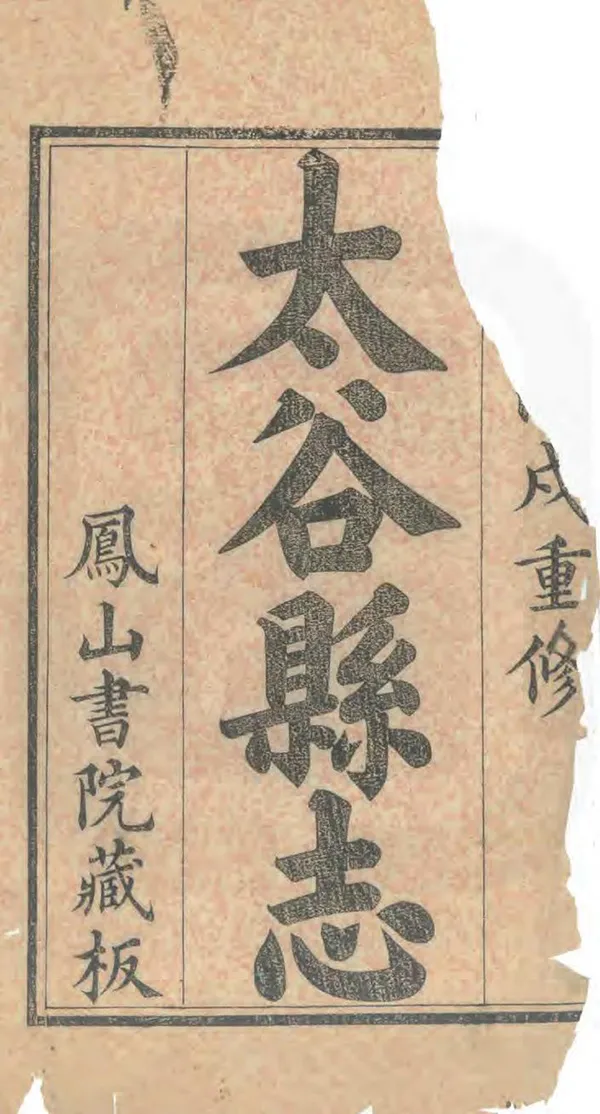 戍重修
太谷縣志
鳳山書院藏板